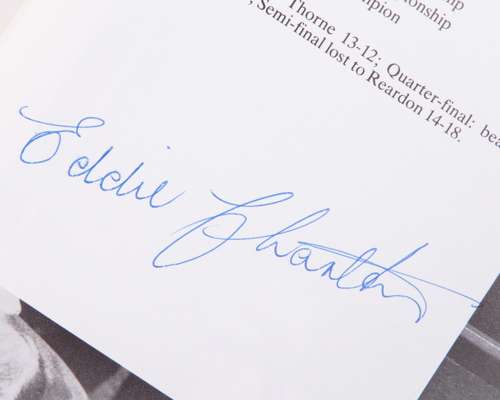 nship
ionship
mpion
Thorne 13-12; Quarter-final: bea
, Semi-final lost to Reardon 14-18.
Eddie Charlton